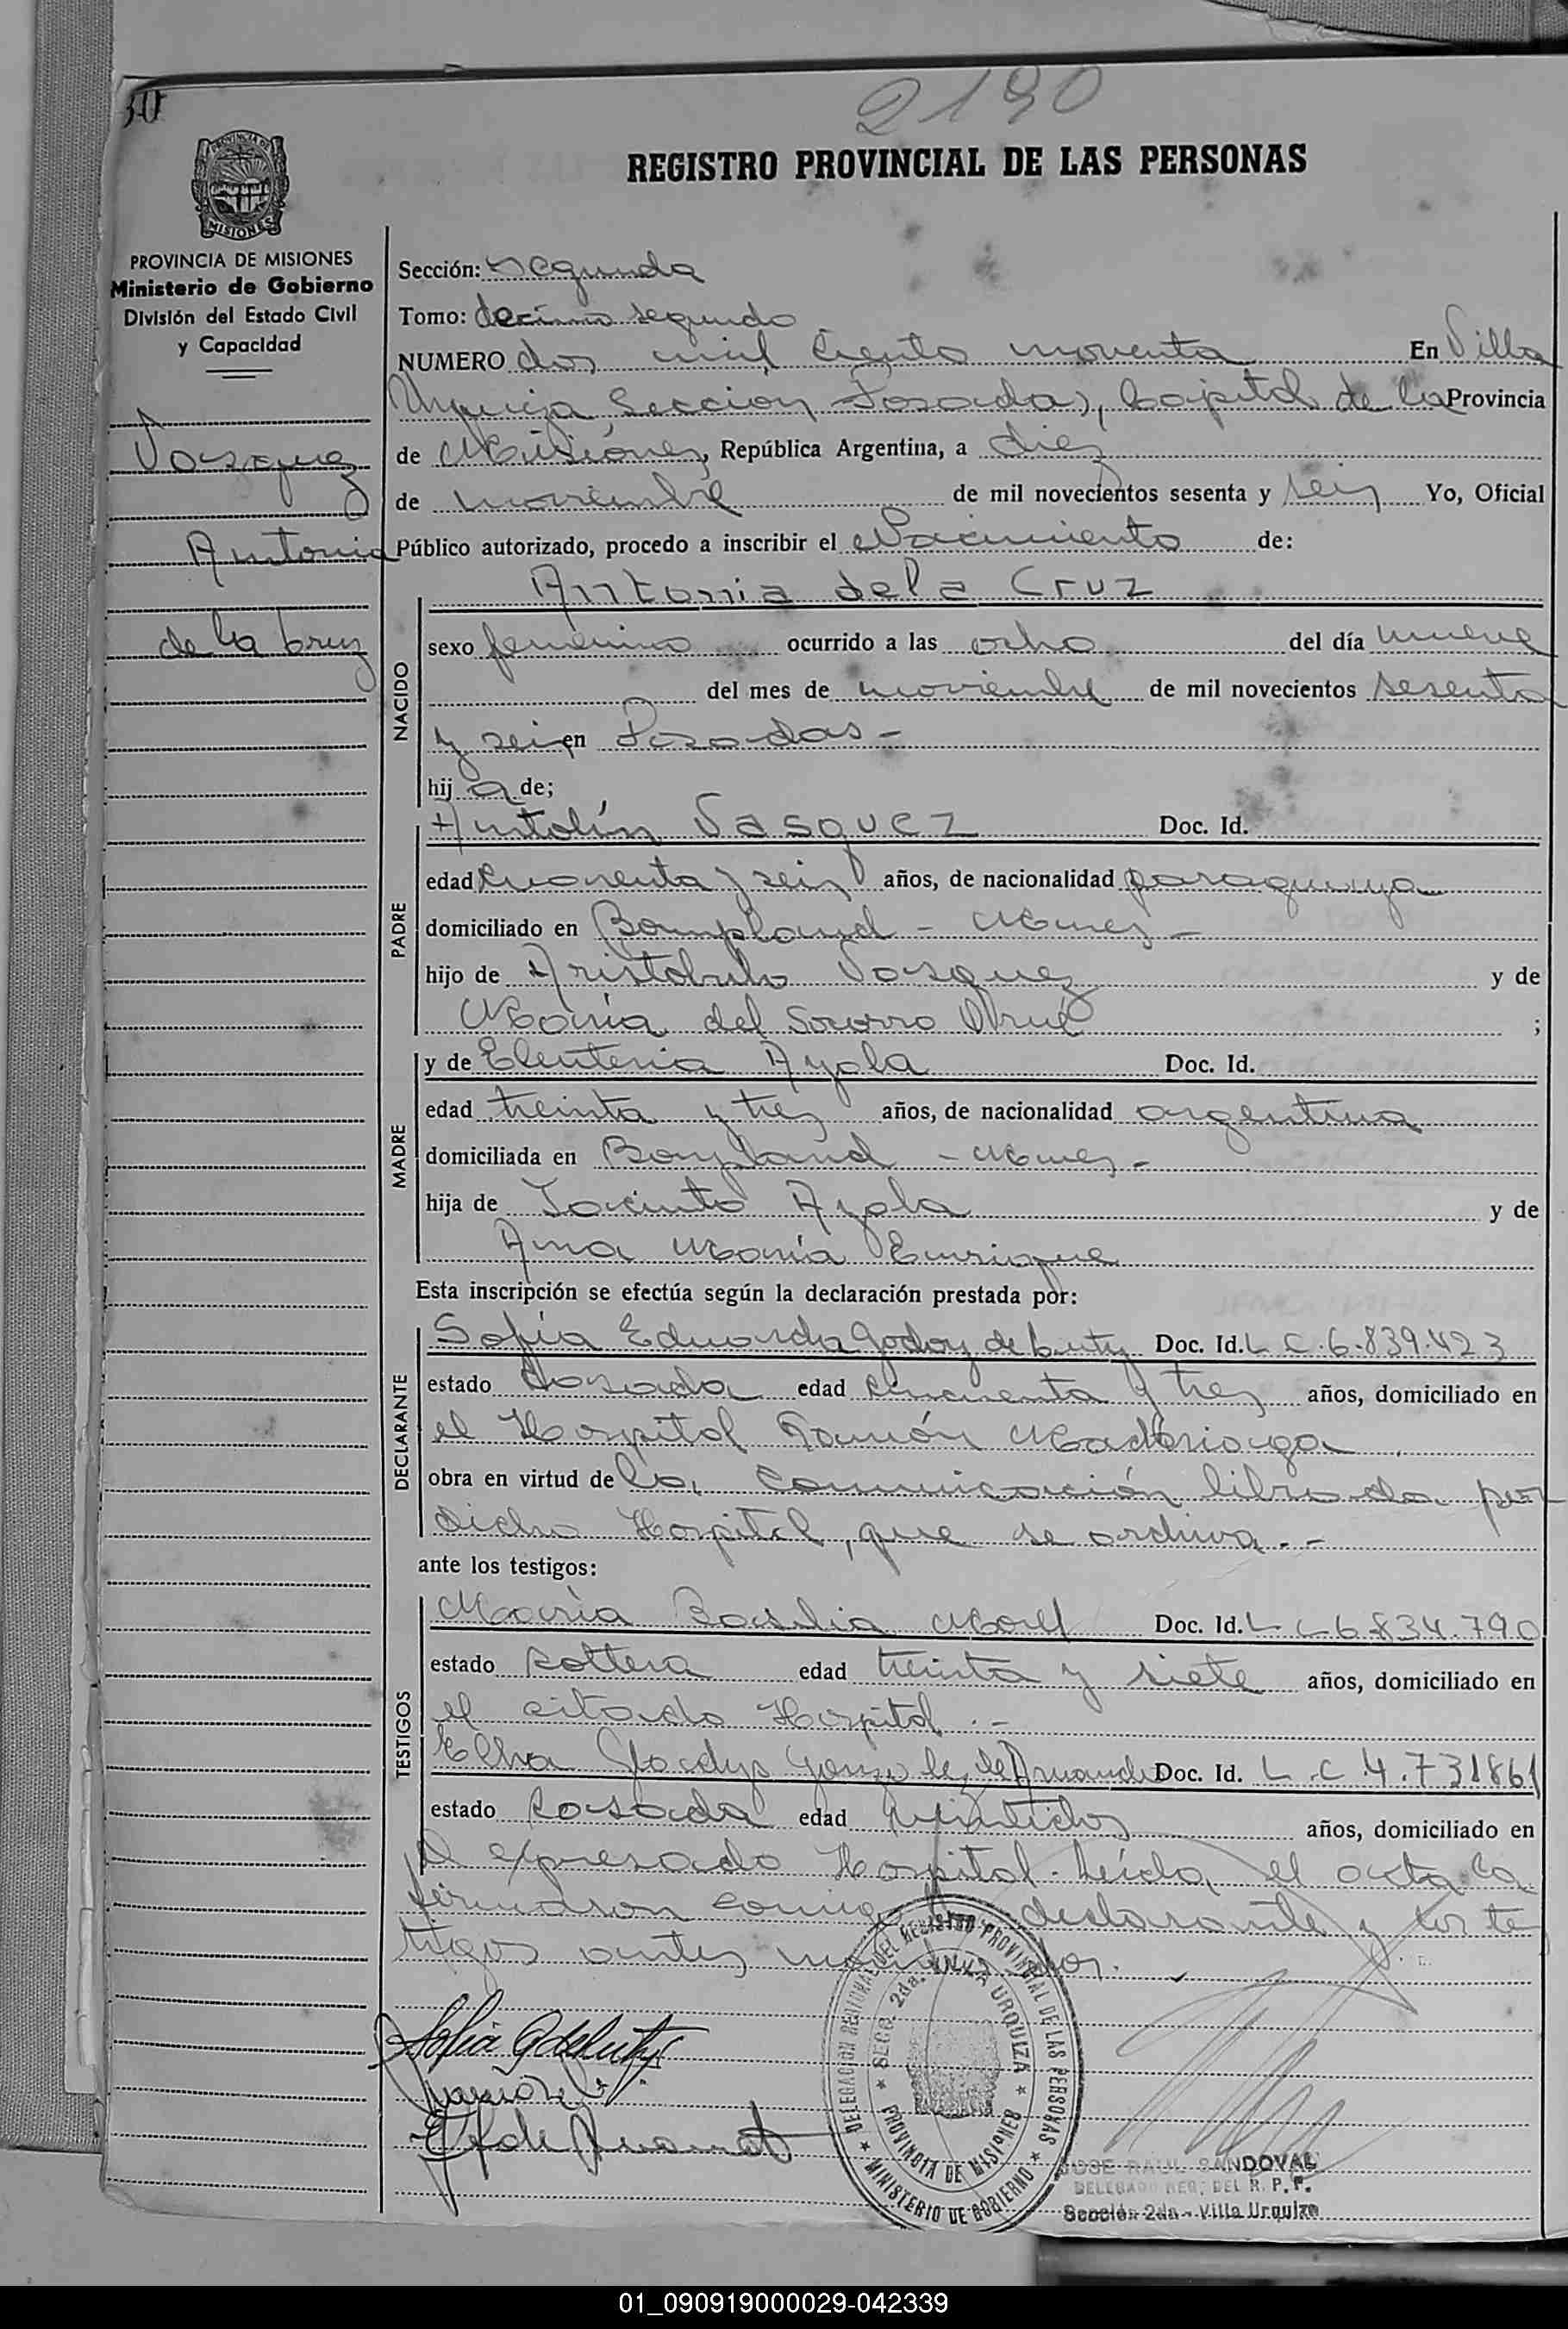 30
2190
REGISTRO PROVINCIAL DE LAS PERSONAS
PROVINCIA DE MISIONES
Ministerio de Gobierno
División del Estado Civil
y Capacidad
Vasquez
Antonia
de la Cruz
Sección: segunda
Tomo: decimo segundo
NUMERO dos mil ciento noventa En Villa
Urquiza, Sección Posadas, Capital de la Provincia
de Misiones, República Argentina, a diez
de noviembre de mil novecientos sesenta y seis Yo, Oficial
Público autorizado, procedo a inscribir el Nacimiento de:
Antonia de la Cruz
NACIDO
sexo femenino ocurrido a las ocho del día nueve
del mes de noviembre de mil novecientos sesenta
y seis en Posadas -
hij a de;
PADRE
Antolín Vasquez Doc. Id.
edad cuarenta y seis años, de nacionalidad paraguaya
domiciliado en Bompland - Mnes -
hijo de Aristobulo Vasquez y de
María del Socorro ;
MADRE
y de Eleuteria Ayala Doc. Id.
edad treinta y tres años, de nacionalidad argentina
domiciliada en Bonpland - Mnes -
hija de Jacinto Ayala y de
Ana María Enrique
Esta inscripción se efectúa según la declaración prestada por:
DECLARANTE
Sofía Eduarda Godoy de Doc. Id. L C. 6.839.423
estado Casada edad cincuenta y tres años, domiciliado en
el Hospital Ramón Madariaga
obra en virtud de la comunicación librada por
dicho Hospital, que se archiva. -
ante los testigos:
TESTIGOS
María Basilia Morel Doc. Id. L C 6.834.790
estado soltera edad treinta y siete años, domiciliado en
el citado Hospital. -
Elba Gladys Gonzalez de Doc. Id. L. C 4.731861
estado casada edad veintidos años, domiciliado en
el expresado Hospital. Leída el acta la
firmaron conmigo declarante y los tes
tigos antes
DELEGACION REGIONAL DEL REGISTRO PROVINCIAL DE LAS PERSONAS
★ MINISTERIO DE GOBIERNO ★
★ SECC 2da. VILLA URQUIZA ★
PROVINCIA DE MISIONES
JOSE RAUL SANDOVAL
DELEGADO REG. DEL R. P. P.
Sección 2da - Villa Urquiza
01_090919000029-042339